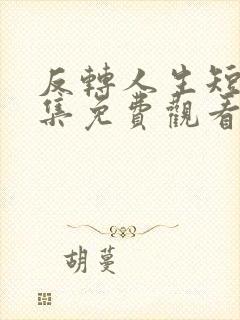 反轉人生短
集免費觀看
胡蔓